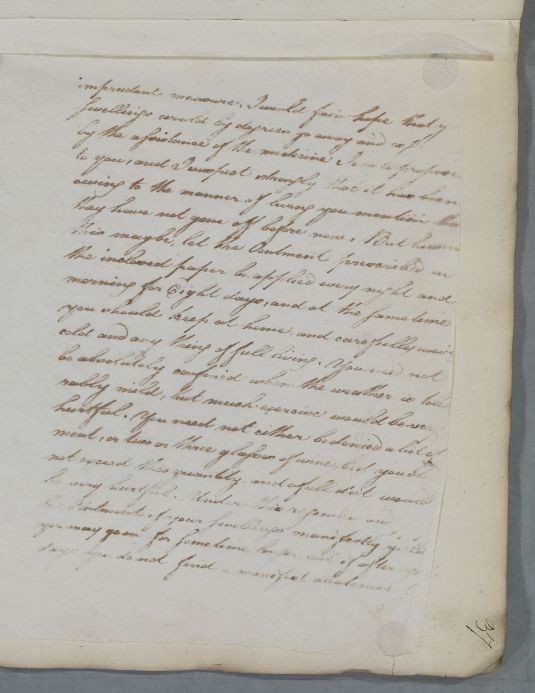 imprudent measure. I would fain hope that y
swellings would by degrees go away and
by the assistance of the medicine I am to prescribe
to you, and I suspect strongly that it has been
owing to the manner of living you mention that
they have not gone off before now. But however
this may be, let the Ointment prescribed in
the inclosed paper be applied every night and
morning for Eight days, and at the same time
you should keep at home and carefully avoid
cold and any thing of full living. You need not
be absolutely confined when the weather is tole
rably mild, but much exercise would be very
hurtful. You need not either be denied a bit of
meat, or two or three glasses of wine, but you
not exceed this quantity, and a full diet would
be very hurtful. Under this regimen and
the Ointment, if your swellings manifestly yield
you may go on for sometime longer and if after
days you do not find a manifest
31